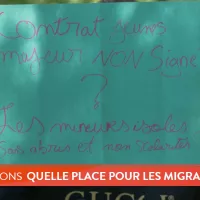 Contrat jeune
majeur NON Signé
?
Les mineurs isolés
et non
ONS QUELLE PLACE POUR LES MIGRA